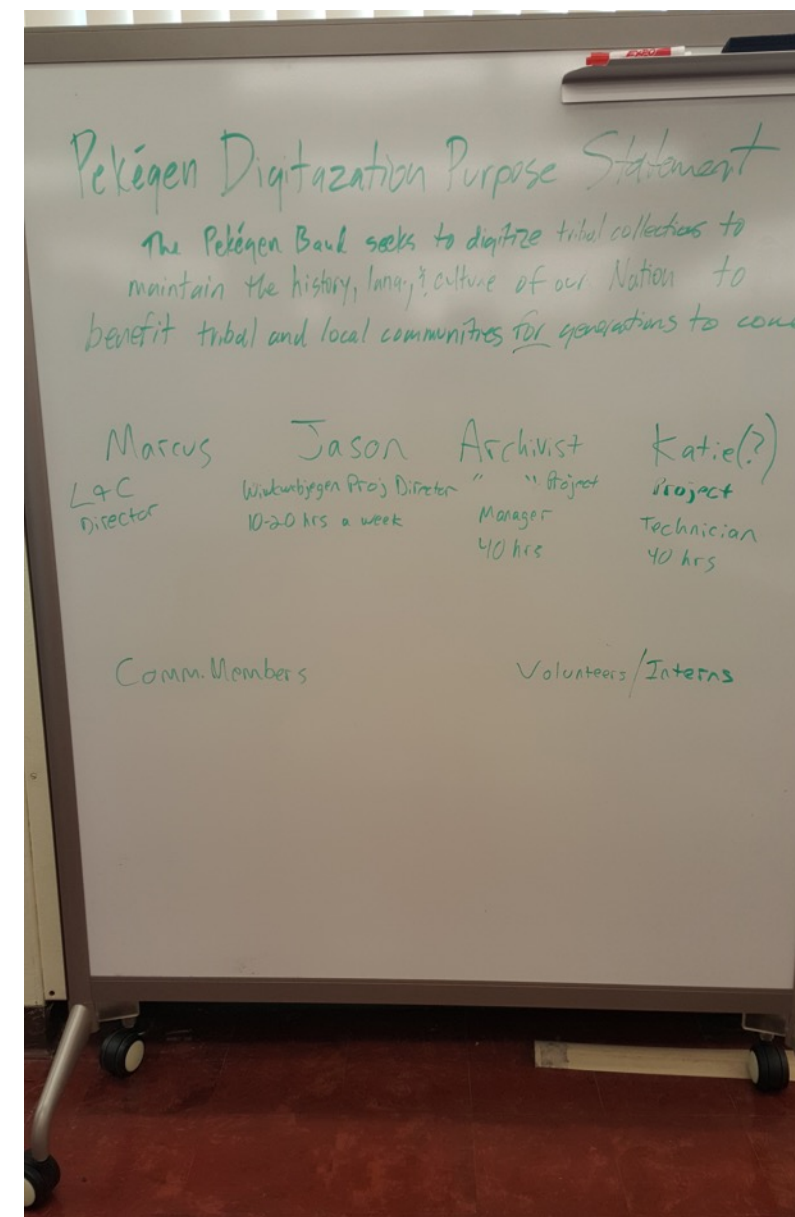 EXPO
Pekégen Digitazation Purpose Statement
The Pekégen Band seeks to digitize tribal collections to
maintain the history, lang., & culture of our Nation to
benefit tribal and local communities for generations to com
Marcus Jason Archivist Katie(?)
L&C Director
Proj Director
10-20 hrs a week
" " Project
Manager
40 hrs
Project
Technician
40 hrs
Comm. Members Volunteers/Interns